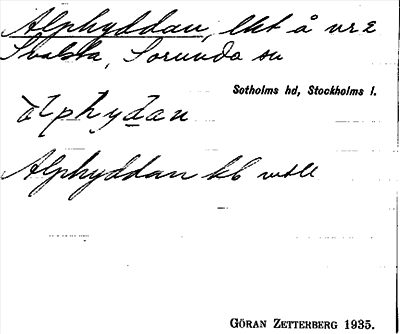 Alphyddan, lht å nr 2
Svalsta, Sorunda sn
Sotholms hd, Stockholms l.
alphydan
Alphyddan kb
GÖRAN ZETTERBERG 1935.